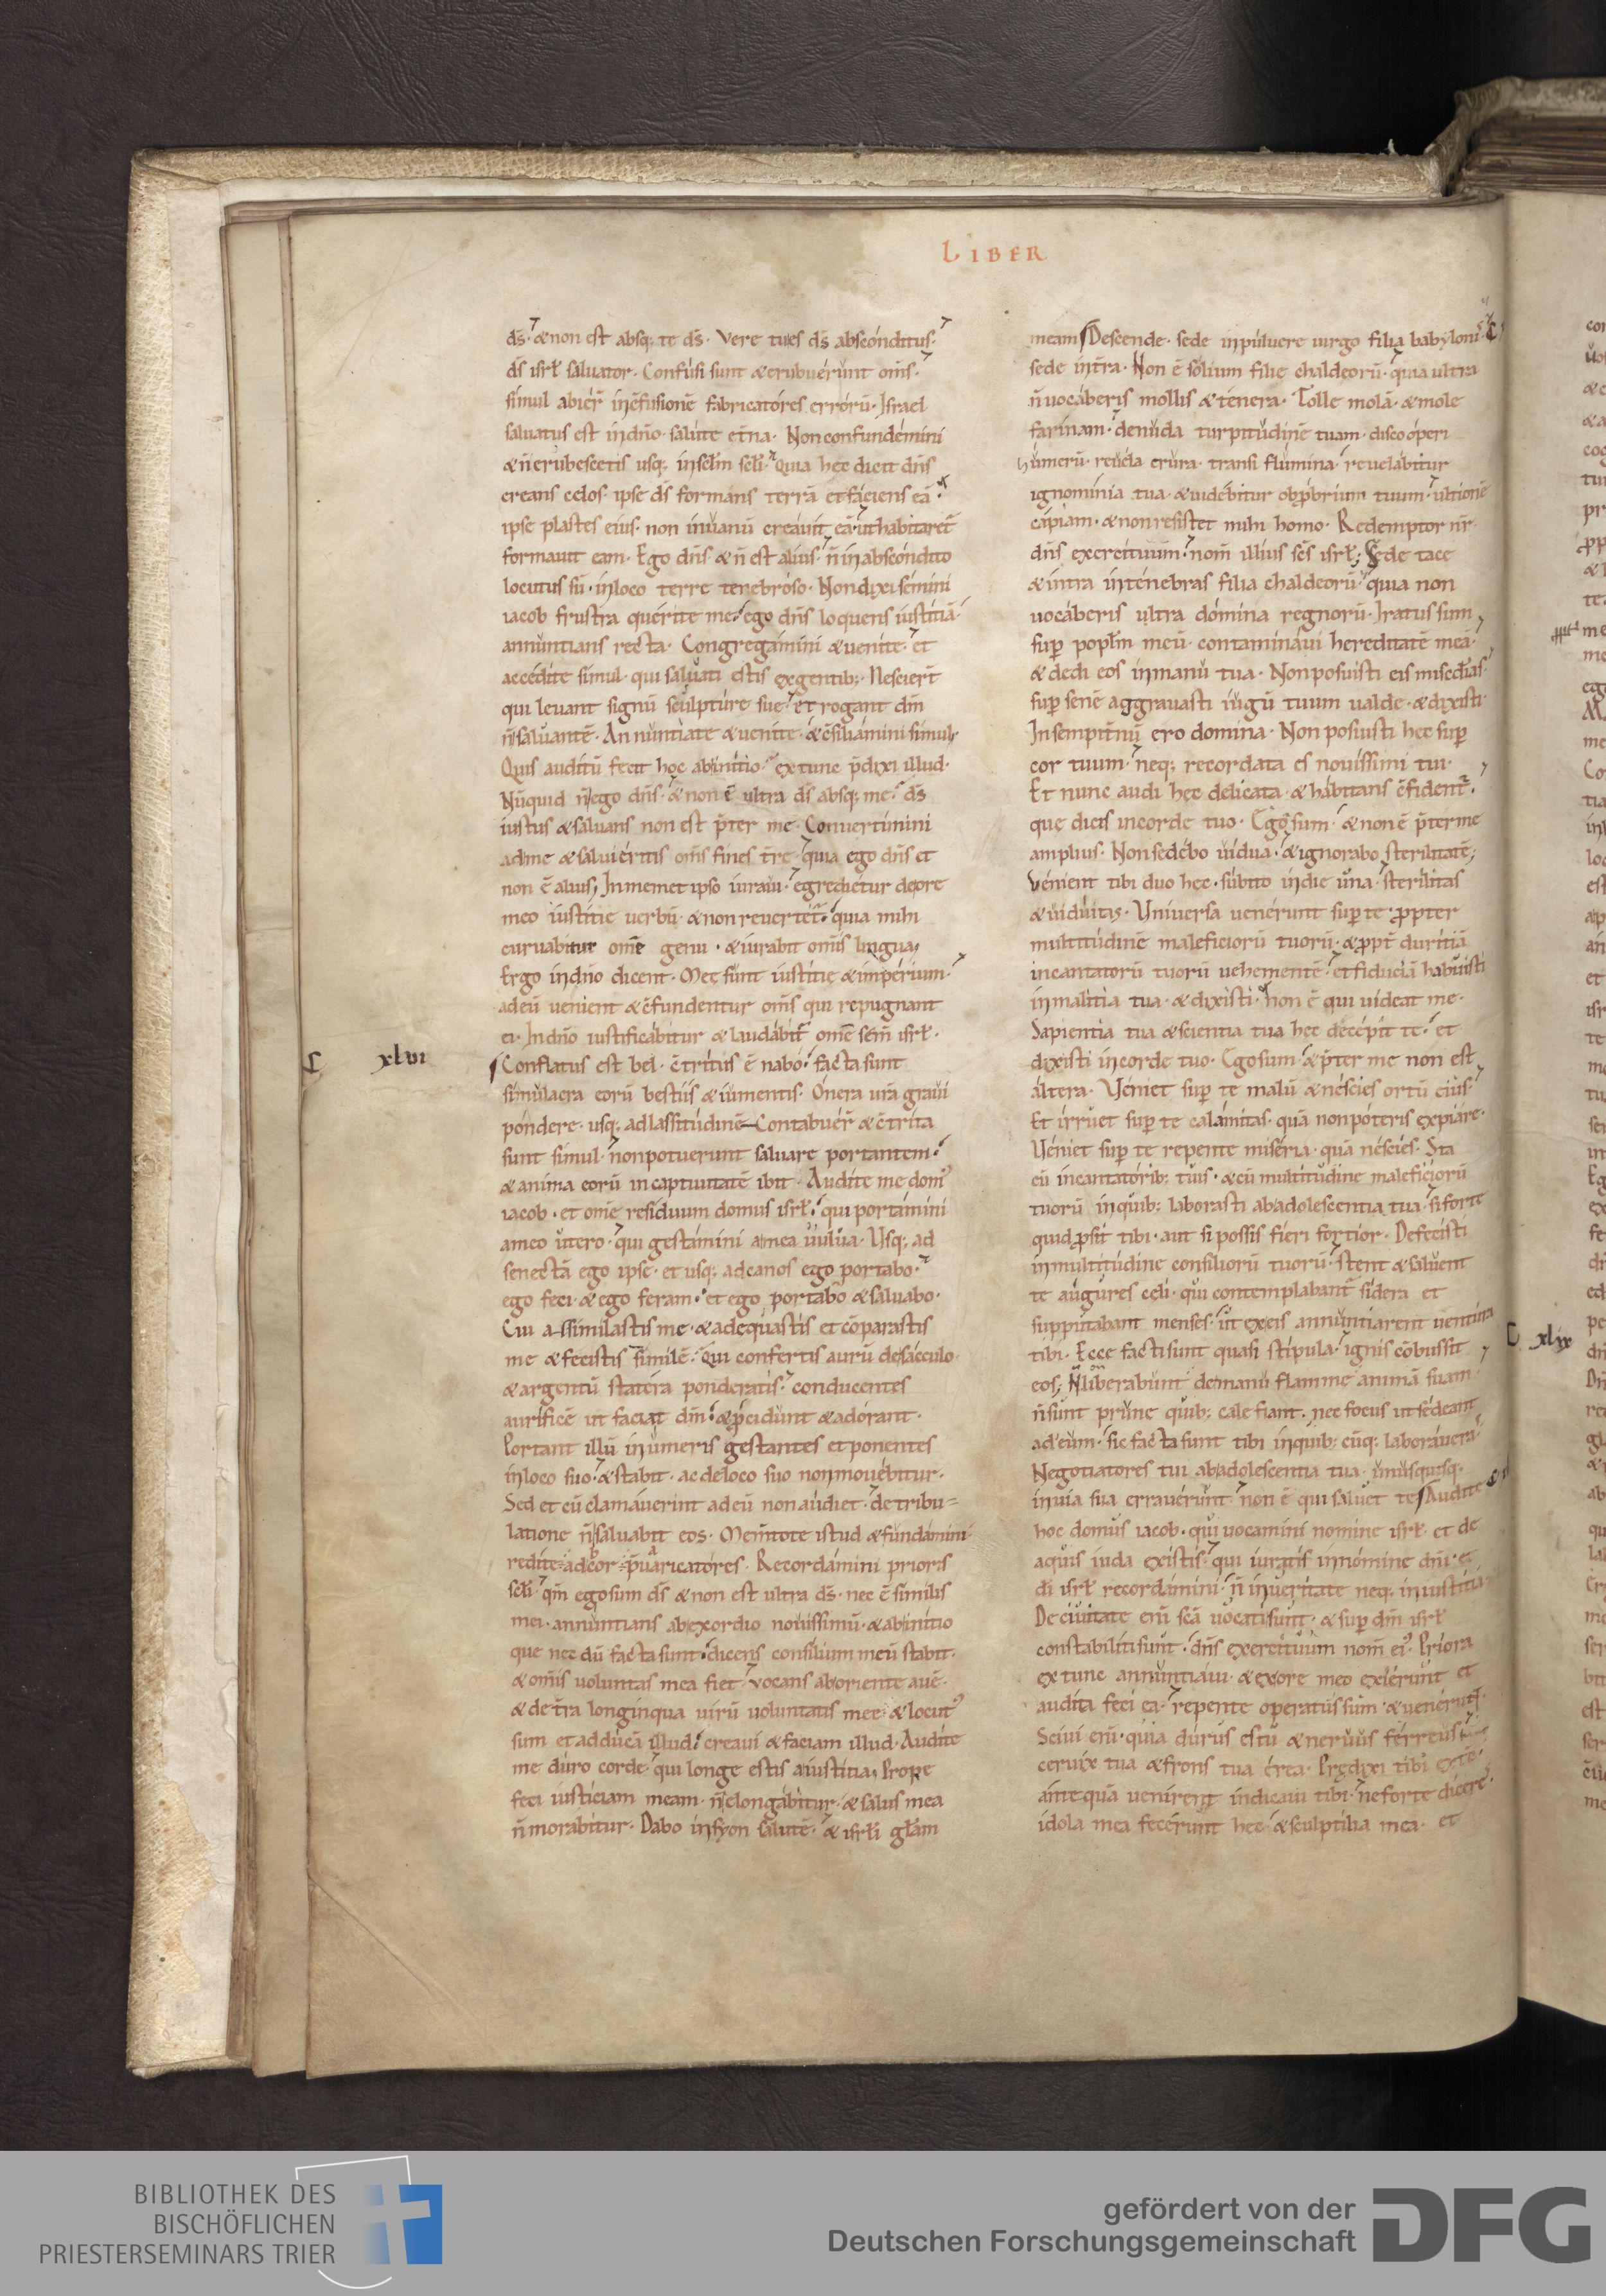 LIBER
ds̄. & non est absq; te ds̄. Vere tu es ds̄ absconditus.
ds̄ isrł saluator. Confusi sunt & erubuerunt om̄s.
simul abier̄ in c̄fusionē fabricatores errorū. Israel
saluatus est in dn̄o salute et̄na. Non confundemini
& n̄ erubescetis usq; in sclm̄ scli. Quia hęc dicit dn̄s
creans celos. ipse ds̄ formans terrā et faciens eā.
ipse plastes eius. non in uanū creauit eā. ut habitaret̄
formauit eam. Ego dn̄s & n̄ est alius. n̄ in abscondito
locutus sū. in loco terre tenebroso. Non dixi semini
iacob frustra querite me. ego dn̄s loquens iustitiā.
annuntians recta. Congregamini & uenite. et
accedite simul. qui saluati estis ex gentib;. Nescier̄t
qui leuant signū sculpture sue. et rogant dm̄
n̄ saluantē. Annuntiate & uenite. & c̄siliamini simul.
Quis auditū fecit hoc ab initio. ex tunc p̄dixi illud.
Nūquid n̄ ego dn̄s. & non ē ultra ds̄ absq; me. ds̄
iustus & saluans non est p̄ter me. Conuertimini
ad me & salui eritis om̄s fines tr̄e. quia ego dn̄s et
non ē alius; In memet ipso iuraui. egredietur de ore
meo iustitie uerbū. & non reuertet̄. quia mihi
curuabitur om̄e genu. & iurabit om̄is lingua.
Ergo in dn̄o dicent. Meę sunt iustitię & imperium.
ad eū uenient & c̄fundentur om̄s qui repugnant
ei. In dn̄o iustificabitur & laudabit̄ om̄e sem̄ isrł.
C xlvi
Conflatus est bel. c̄tritus ē nabo. facta sunt
simulacra eorū bestiis & iumentis. Onera urā graui
pondere. usq; ad lassitudinē. Contabuer̄ & c̄trita
sunt simul. non potuerunt saluare portantem.
& anima eorū in captiuitatē ibit. Audite me dom̄
iacob. et om̄e residuum domus isrł. qui portamini
a meo utero. qui gestamini a mea uulua. Usq; ad
senectā ego ipse. et usq; ad canos ego portabo.
ego feci. & ego feram. et ego portabo & saluabo.
Cui assimilastis me. & adequastis et cōparastis
me & fecistis similē. Qui confertis aurū de sacculo.
& argentū statera ponderatis. conducentes
aurificē ut faciat dm̄. & p̄cidunt & adorant.
Portant illū in umeris gestantes et ponentes
in loco suo. & stabit. ac de loco suo non mouebitur.
Sed et cū clamauerint ad eū non audiet. de tribu=
latione n̄ saluabit eos. Mem̄tote istud & fundamini
redite ad cor p̄uaricatores. Recordamini prioris
scli. qm̄ ego sum ds̄ & non est ultra ds̄. nec ē similis
mei. annuntians ab exordio nouissimū. & ab initio
que nec dū facta sunt. dicens consilium meū stabit.
& om̄is uoluntas mea fiet. vocans ab oriente auē.
& de tr̄a longinqua uirū uoluntatis mee. & locut̄
sum et adducā illud. creaui & faciam illud. Audite
me duro corde. qui longe estis a iustitia. Prope
feci iusticiam meam. n̄ elongabitur. & salus mea
n̄ morabitur. Dabo in syon salutē. & isrłi głam
meam. Descende. sede in puluere uirgo filia babyloni
sede in tr̄a. Non ē solium filie chaldeorū. quia ultra
n̄ uocaberis mollis & tenera. Tolle molā. & mole
farinam. denuda turpitudinē tuam. discooperi
humerū. reuela crura. transi flumina. reuelabitur
ignominia tua. & uidebitur obp̄brium tuum. ultionē
capiam. & non resistet mihi homo. Redemptor nr̄.
dn̄s exercituum. nom̄ illius sc̄s isrł; Sede tace
& intra in tenebras filia chaldeorū. quia non
uocaberis ultra domina regnorū. Iratus sum
sup̄ popłm meū. contaminaui hereditatē meā.
& dedi eos in manu tua. Non posuisti eis misedias.
sup̄ senē aggrauasti iugū tuum ualde. & dixisti
In sempit̄nū ero domina. Non posuisti hec sup̄
cor tuum. neq; recordata es nouissimi tui.
Et nunc audi hęc delicata. & habitans c̄fident̄.
que dicis in corde tuo. Ego sum. & non ē p̄ter me
amplius. Non sedebo uidua. & ignorabo sterilitatē;
Venient tibi duo hec. subito in die una. sterilitas
& uiduitas. Uniuersa uenerunt sup̄ te. propter
multitudinē maleficiorū tuorū. & ppt̄ duritiā
incantatorū tuorū uehementē. et fiduciā habuisti
in malitia tua. & dixisti. Non ē qui uideat me.
Sapientia tua & scientia tua hec decepit te. et
dixisti in corde tuo. Ego sum. & p̄ter me non est
altera. Veniet sup̄ te malū & nescies ortū eius.
Et irruet sup̄ te calamitas. quā non poteris expiare.
Veniet sup̄ te repente miseria. quā nescies. Sta
cū incantatorib; tuis. & cū multitudine maleficiorū
tuorū in quib; laborasti ab adolescentia tua. si forte
quid p̄sit tibi. aut si possis fieri fortior. Defecisti
in multitudine consiliorū tuorū. stent & saluent
te augures celi. qui contemplabant̄ sidera et
supputabant menses. ut ex eis annuntiarent uentura
tibi. Ecce facti sunt quasi stipula. ignis cōbussit
eos; N̄ liberabunt de manu flamme animā suam.
n̄ sunt prune quib; calefiant. nec focus ut sedeant
ad eum. sic facta sunt tibi in quib; cūq; laborauera
Negotiatores tui ab adolescentia tua. unusquisq;
in uia sua errauerunt. non ē qui saluet te. Audite
hoc domus iacob. qui uocamini nomine isrł. et de
aquis iuda existis. qui iuratis in nomine dn̄i. et
di isrł recordamini. n̄ in ueritate neq; in iustitia
De ciuitate eni scā uocati sunt. & sup̄ dm̄ isrł
constabiliti sunt. dn̄s exercituum nom̄ ei. Priora
ex tunc annuntiaui. & ex ore meo exierunt et
audita feci ea. repente operatus sum. & uenerunt.
Sciui eni. quia durus es tu & neruus ferreus
ceruix tua & frons tua erea. Prędixi tibi
antequā uenirent indicaui tibi. ne forte diceres.
idola mea fecerunt hec. & sculptilia mea. et
C xlix
BIBLIOTHEK DES
BISCHÖFLICHEN
PRIESTERSEMINARS TRIER
gefördert von der
Deutschen Forschungsgemeinschaft
DFG